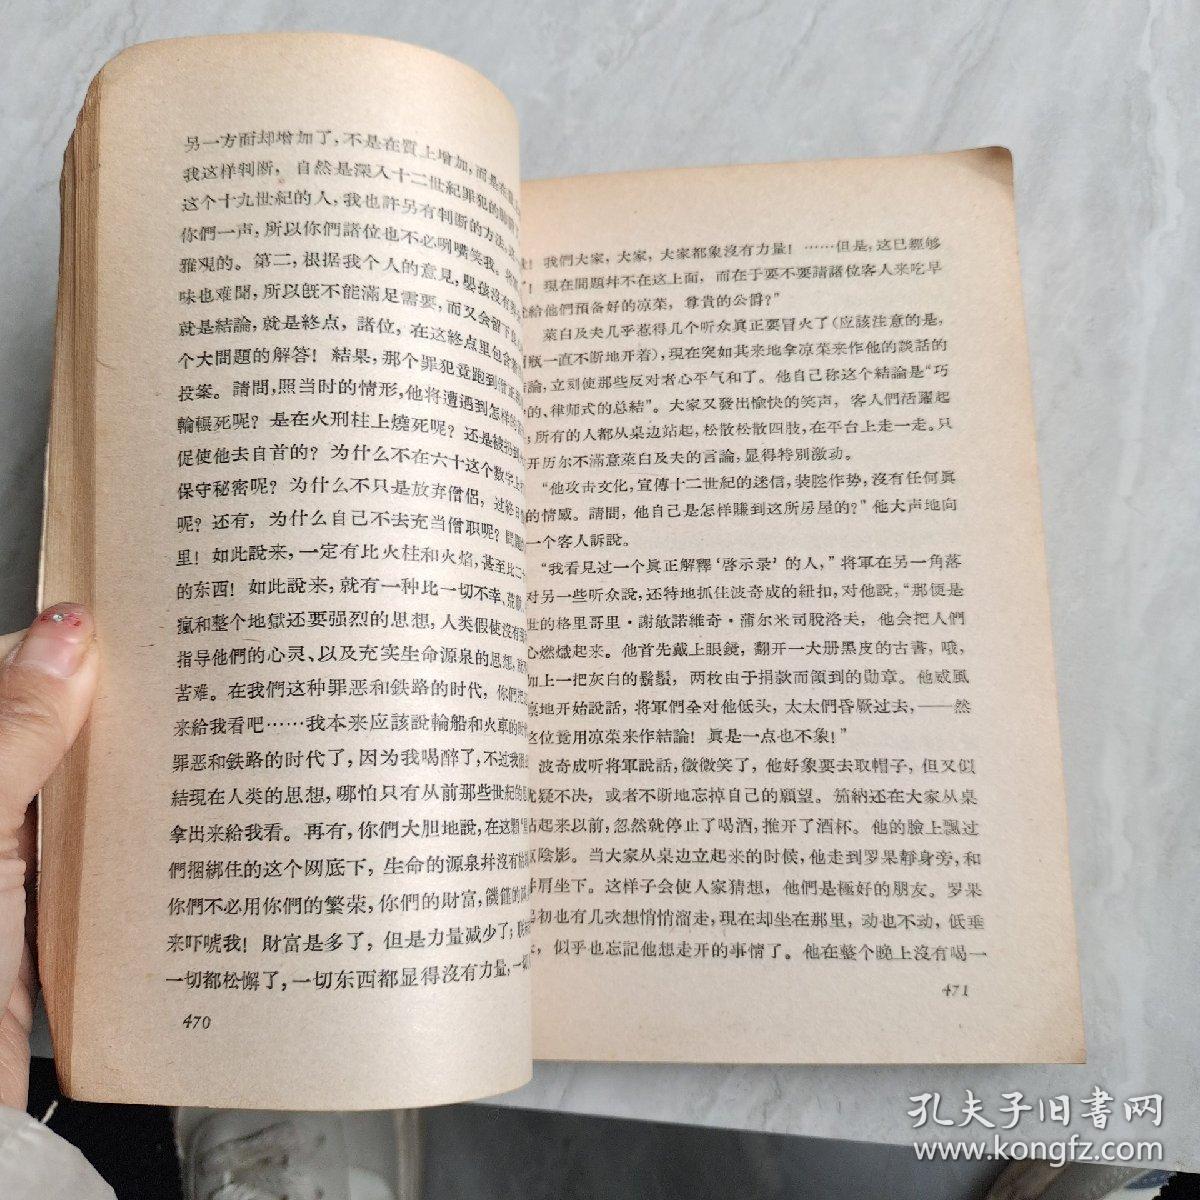 另一方面却增加了，不是在質上增加，而是在
我这样判断，自然是深入十二世紀罪犯的
这个十九世紀的人，我也許另有判断的方法，
你們一声，所以你們諸位也不必咧嘴笑我。
雅观的。第二，根据我个人的意見，嬰孩沒有
味也难聞，所以旣不能滿足需要，而又会留下
就是結論，就是終点，諸位，在这終点里包含
个大問題的解答！結果，那个罪犯竟跑到僧正
投案。請問，照当时的情形，他将遭遇到怎样的
輪輾死呢？是在火刑柱上燒死呢？还是被
促使他去自首的？为什么不在六十这个数字上
保守秘密呢？为什么不只是放弃僧侶，过終日
呢？还有，为什么自己不去充当僧职呢？
里！如此說来，一定有比火柱和火焰，甚至比二
的东西！如此說来，就有一种比一切不幸、荒
瘋和整个地獄还要强烈的思想，人类假使沒有
指导他們的心灵、以及充实生命源泉的思想，
苦难。在我們这种罪恶和鉄路的时代，你們把
来給我看吧……我本来应該說輪船和火車的时
罪恶和鉄路的时代了，因为我喝醉了，不过我
結現在人类的思想，哪怕只有从前那些世紀的
拿出来給我看。再有，你們大胆地說，在这顆
們捆綁住的这个网底下，生命的源泉幷沒有
你們不必用你們的繁荣，你們的財富，饑饉的
来吓唬我！財富是多了，但是力量减少了；
一切都松懈了，一切东西都显得沒有力量，一
470
！我們大家，大家，大家都象沒有力量！……但是，这已經够
”！現在問題幷不在这上面，而在于要不要請諸位客人来吃早
給他們預备好的凉菜，尊貴的公爵？”
萊白及夫几乎惹得几个听众眞正要冒火了（应該注意的是，
瓶一直不断地开着），現在突如其来地拿凉菜来作他的談話的
論，立刻使那些反对者心平气和了。他自己称这个結論是“巧
的、律师式的总結”。大家又發出愉快的笑声，客人們活躍起
，所有的人都从桌边站起，松散松散四肢，在平台上走一走。只
开历尔不滿意萊白及夫的言論，显得特別激动。
“他攻击文化，宣傳十二世紀的迷信，装腔作势，沒有任何眞
的情感。請問，他自己是怎样賺到这所房屋的？”他大声地向
一个客人訴說。
“我看見过一个眞正解釋‘啓示录’的人，”将軍在另一角落
对另一些听众說，还特地抓住波奇成的紐扣，对他說，“那便是
世的格里哥里·謝敏諾維奇·蒲尔米司脫洛夫，他会把人們
心燃熾起来。他首先戴上眼鏡，翻开一大册黑皮的古書，哦，
加上一把灰白的鬍鬚，两枚由于捐款而領到的勛章。他威风
凛地开始說話，将軍們全对他低头，太太們昏厥过去，——然
这位竟用凉菜来作結論！眞是一点也不象！”
波奇成听将軍說話，微微笑了，他好象要去取帽子，但又似
犹疑不决，或者不断地忘掉自己的願望。笳納还在大家从桌
站起来以前，忽然就停止了喝酒，推开了酒杯。他的臉上飄过
陰影。当大家从桌边立起来的时候，他走到罗果靜身旁，和
幷肩坐下。这样子会使人家猜想，他們是極好的朋友。罗果
初也有几次想悄悄溜走，現在却坐在那里，动也不动，低垂
，似乎也忘記他想走开的事情了。他在整个晚上沒有喝一
471
孔夫子旧書网
www.kongfz.com